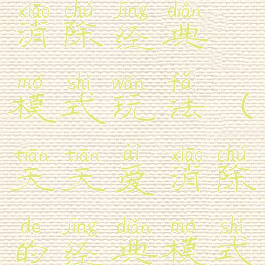 xiāo chú jīng diǎn
消除经典
mó shì wán fǎ
模式玩法（
tiān tiān ài xiāo chú
天天爱消除
de jīng diǎn mó shì
的经典模式